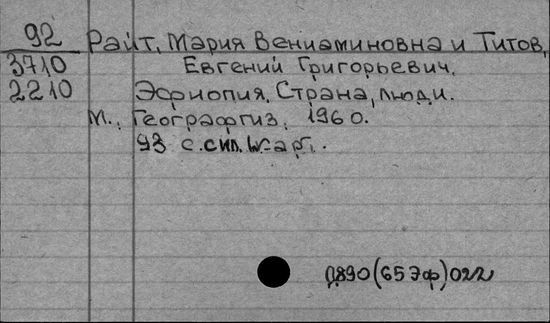 92 Райт, Мария Вениаминовна и Титов,
3710 Евгений Григорьевич.
2210 Эфиопия. Страна, люди.
М., Географгиз, 1960.
93 с. с ил. и карт.
Д890(65Эф)022